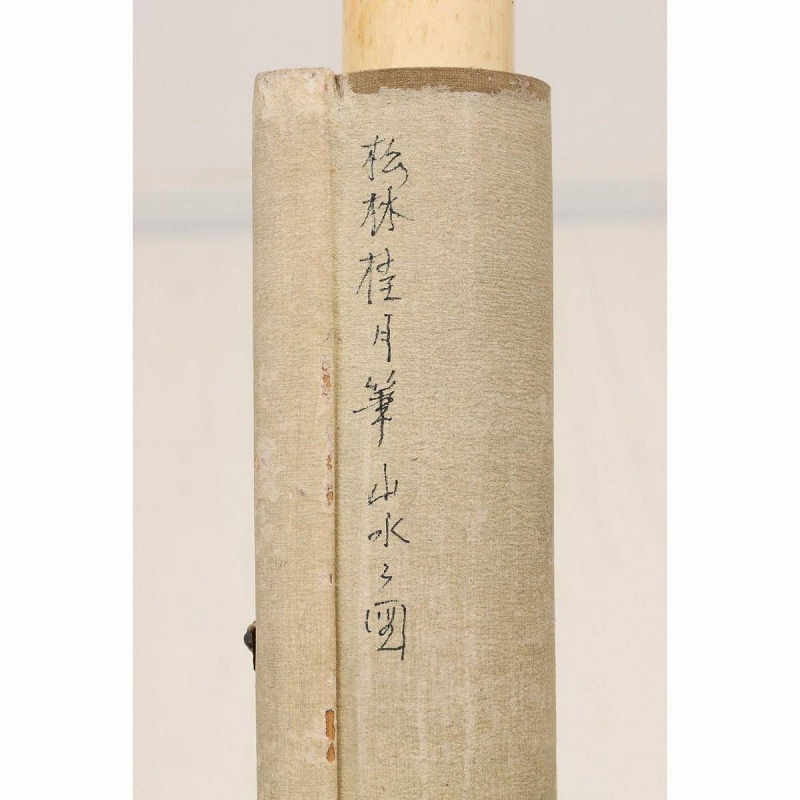 松林桂月筆山水之図